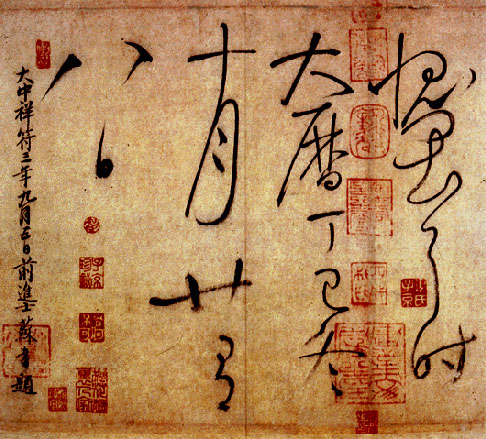 愧畏耳时
大曆丁巳冬
十月廿有
八日
大中祥符三年九月五日前進士蘇耆題